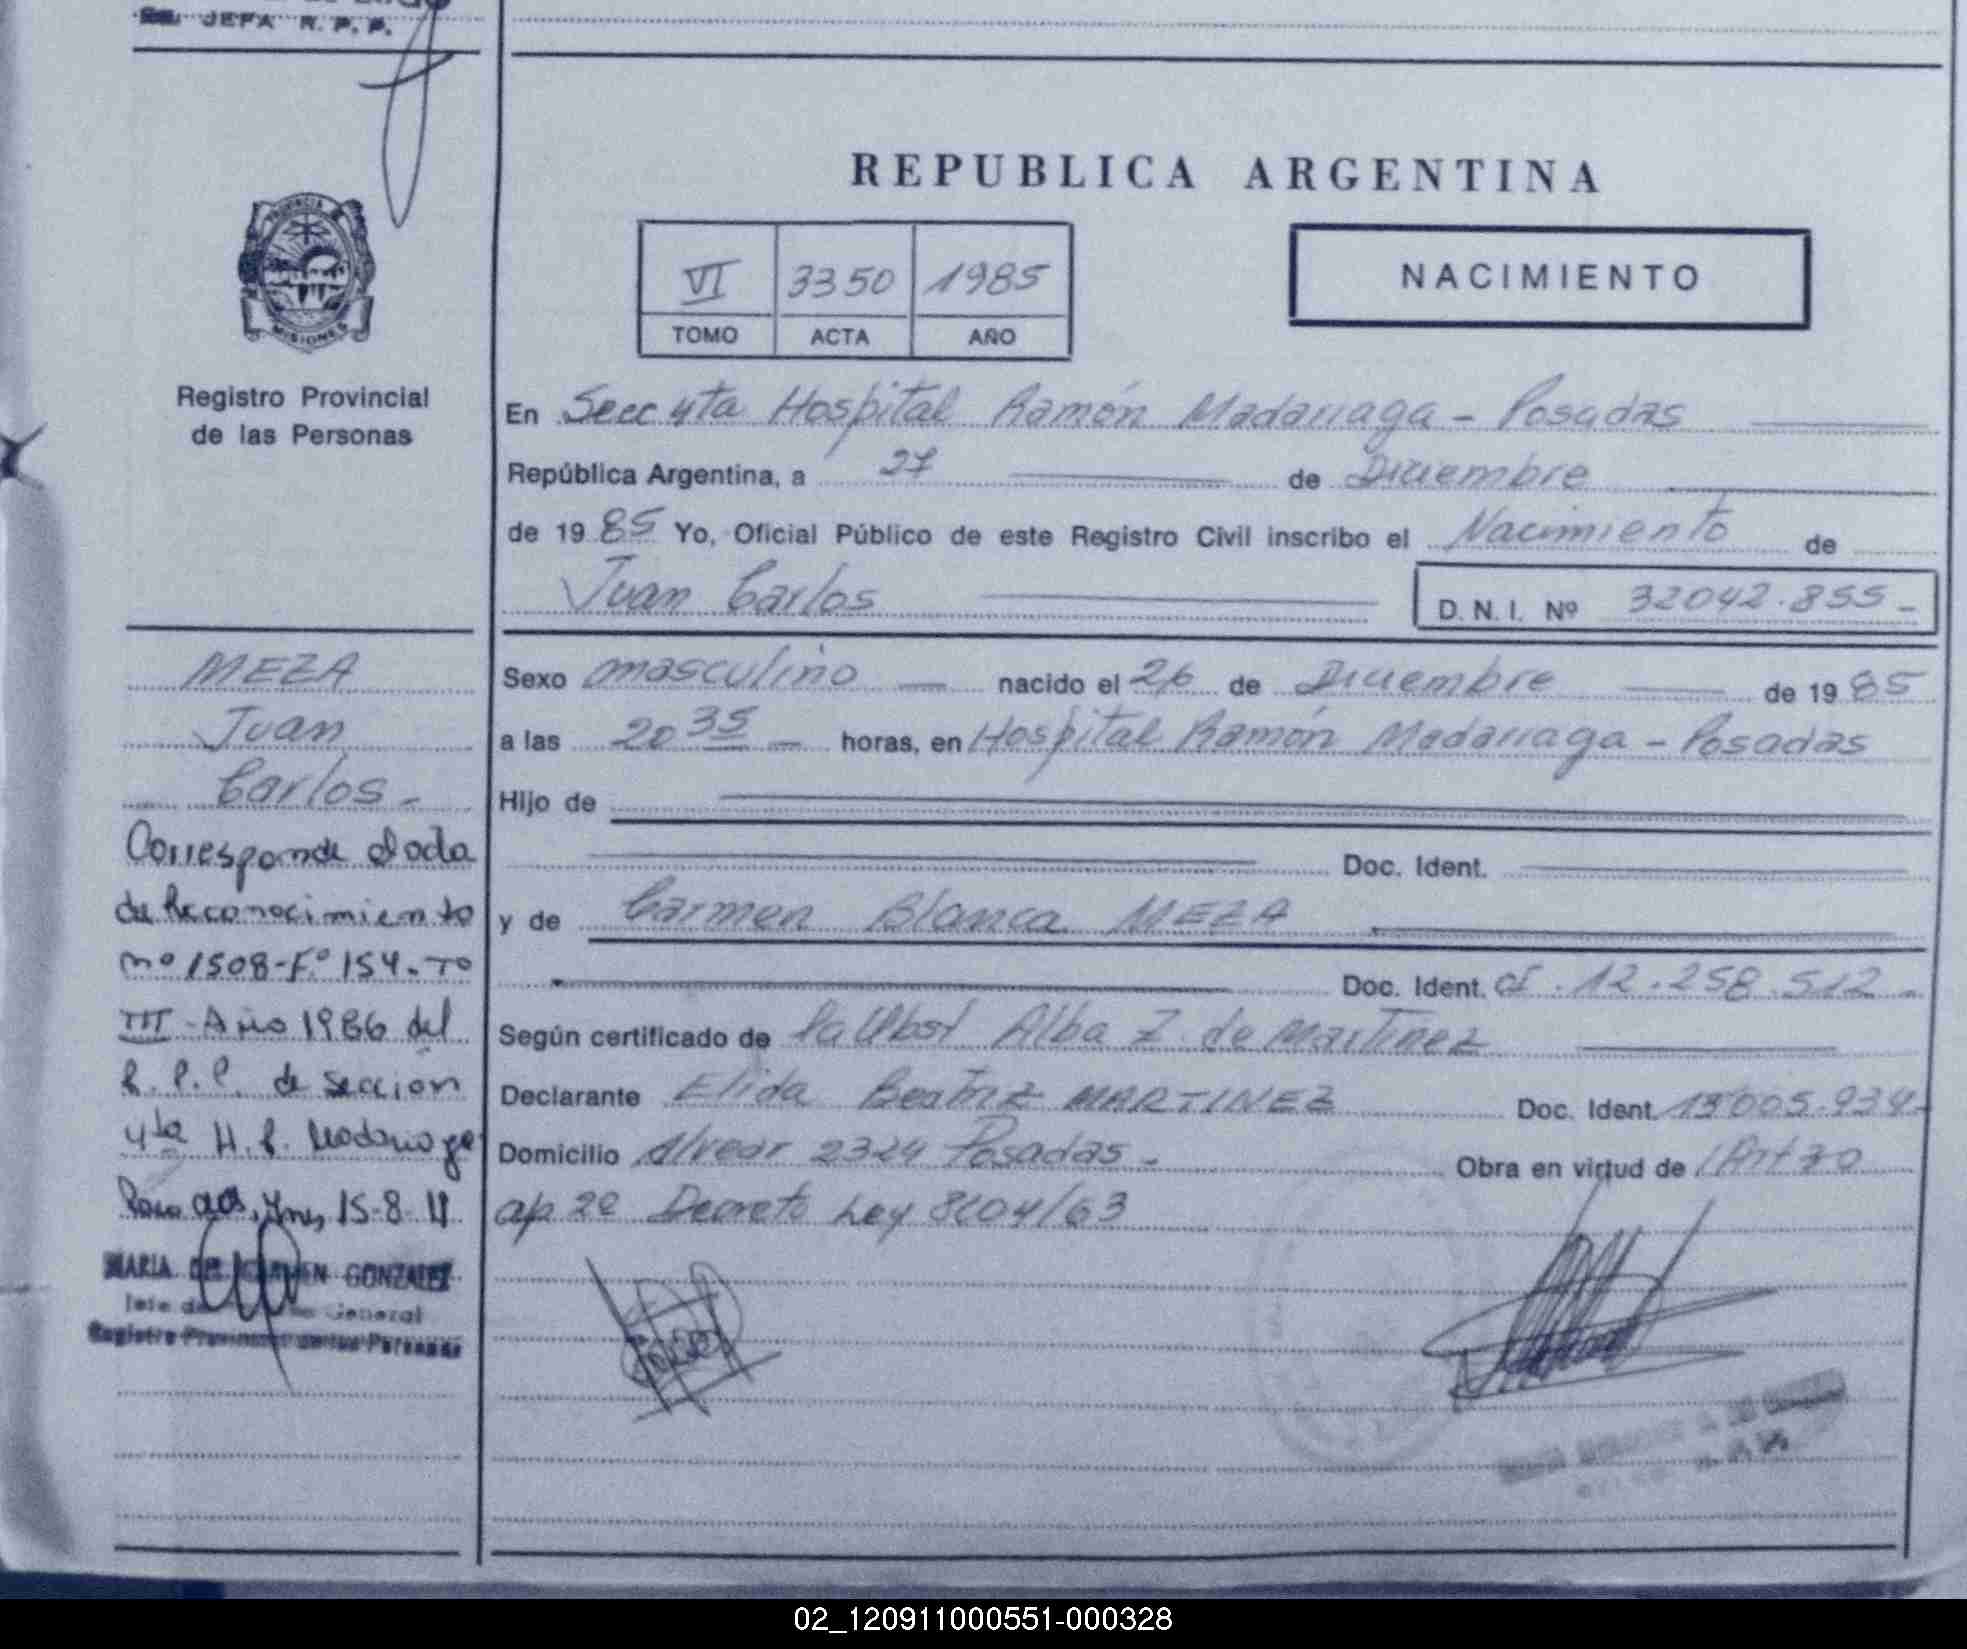 JEFA R. P. P.
REPUBLICA ARGENTINA
PROVINCIA DE
MISIONES
VI 3350 1985
TOMO ACTA AÑO
NACIMIENTO
Registro Provincial
de las Personas
En Secc 4ta Hospital Ramón Madariaga - Posadas
República Argentina, a 27 de Diciembre
de 1985 Yo, Oficial Público de este Registro Civil inscribo el Nacimiento de
Juan Carlos D. N. I. Nº 32042.855-
Sexo masculino nacido el 26 de Diciembre de 1985
a las 20 35 horas, en Hospital Ramón Madariaga - Posadas
Hijo de
Doc. Ident.
y de Carmen Blanca MEZA
Doc. Ident. CI. 12.258.512-
Según certificado de la Obst Alba Z. de Martinez
Declarante Elida Beatriz MARTINEZ Doc. Ident. 13005.934-
Domicilio Alvear 2324 Posadas - Obra en virtud de
ap 2º Decreto Ley 8204/63
MEZA
Juan
Carlos-
Corresponde Nota
de Reconocimiento
nº 1508-Fº 154-Tº
III-Año 1986 del
R.P.P. de Sección
4ta H. R. Madariaga
15-8-11
MARIA DEL CARMEN GONZALEZ
General
Registro Provincial de las Personas
02_120911000551-000328